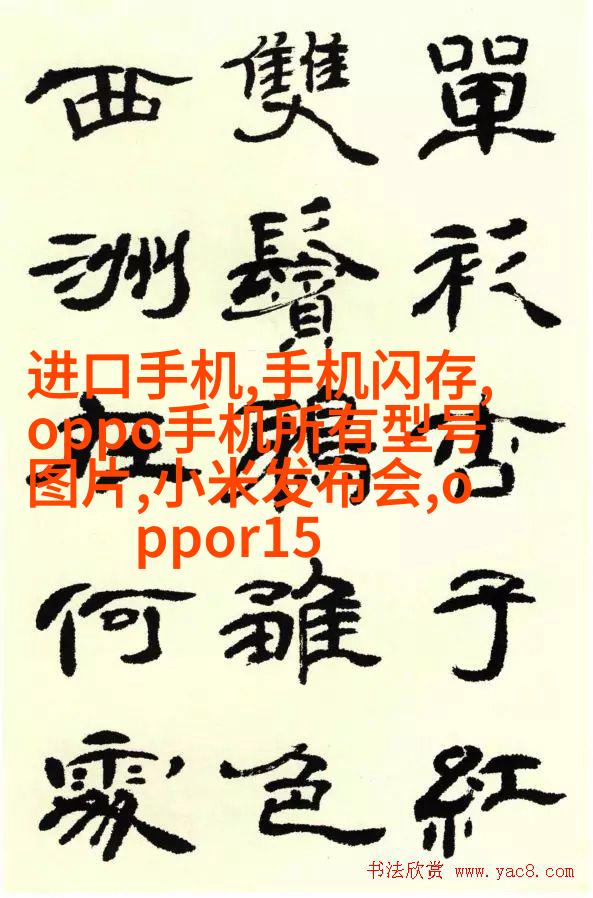 單衫杏子紅
雙鬢雛色
西洲在何處
进口手机,手机闪存,
oppo手机所有型号
图片,小米发布会,o
ppor15
书法欣赏 www.yac8.com